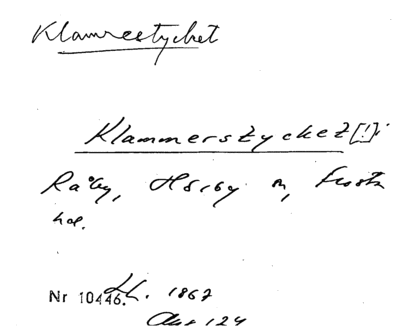 Klamrestycket
Klammerstycket [!]
Råby, Hörby sn, Frosta
hd.
Nr 10446. LL. 1867
Akt 124